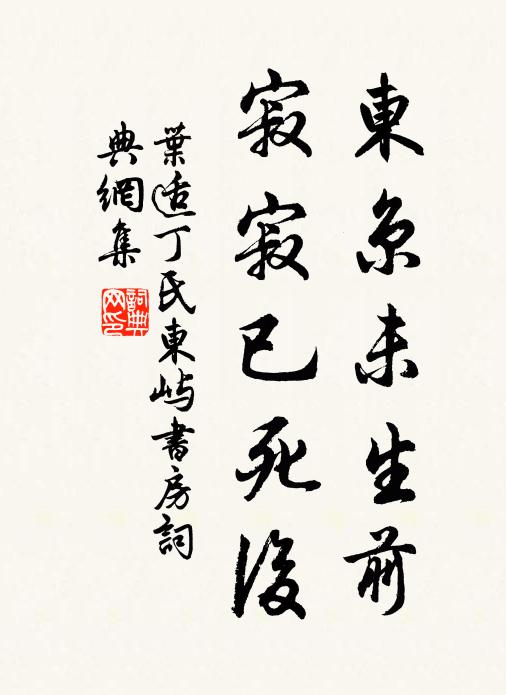 東京未生前
寂寂已死後
葉适丁氏東嶼書房詞
典網集
詞典網印